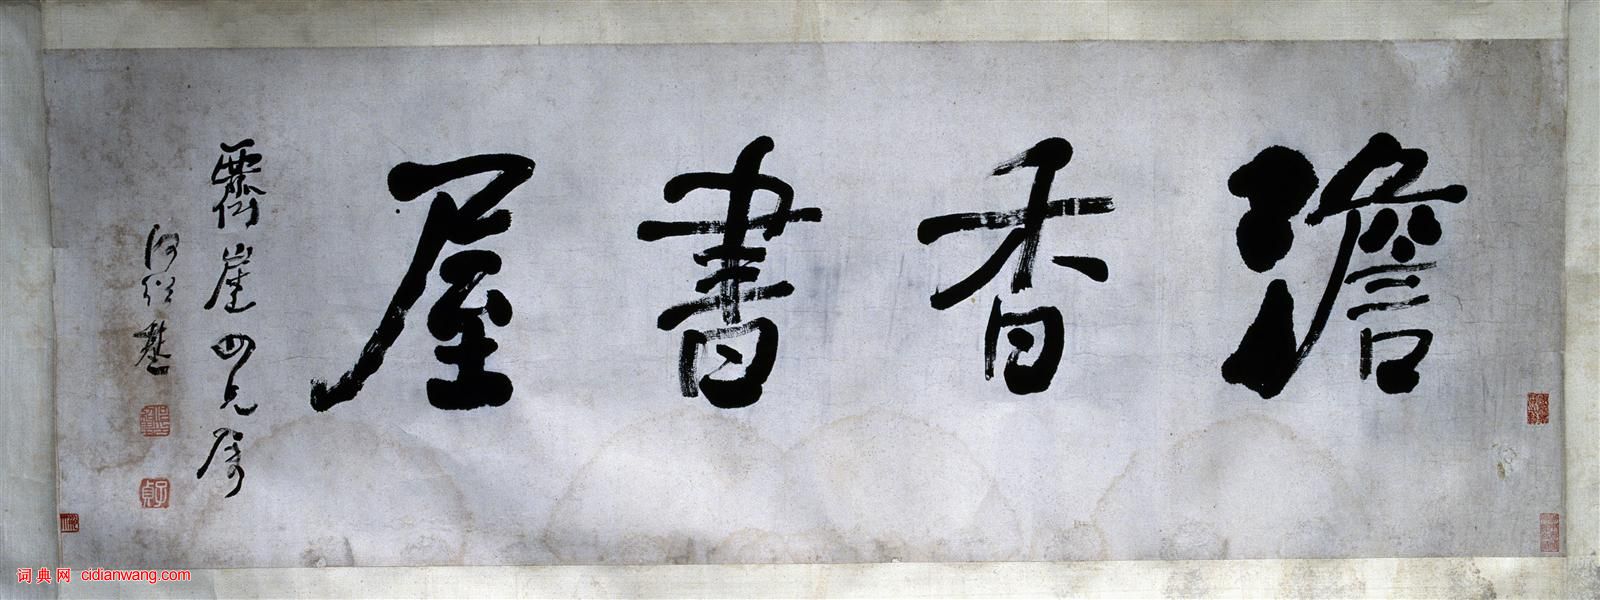 澹香書屋
霽崖四兄屬
何紹基
子貞
词典网 cidianwang.com